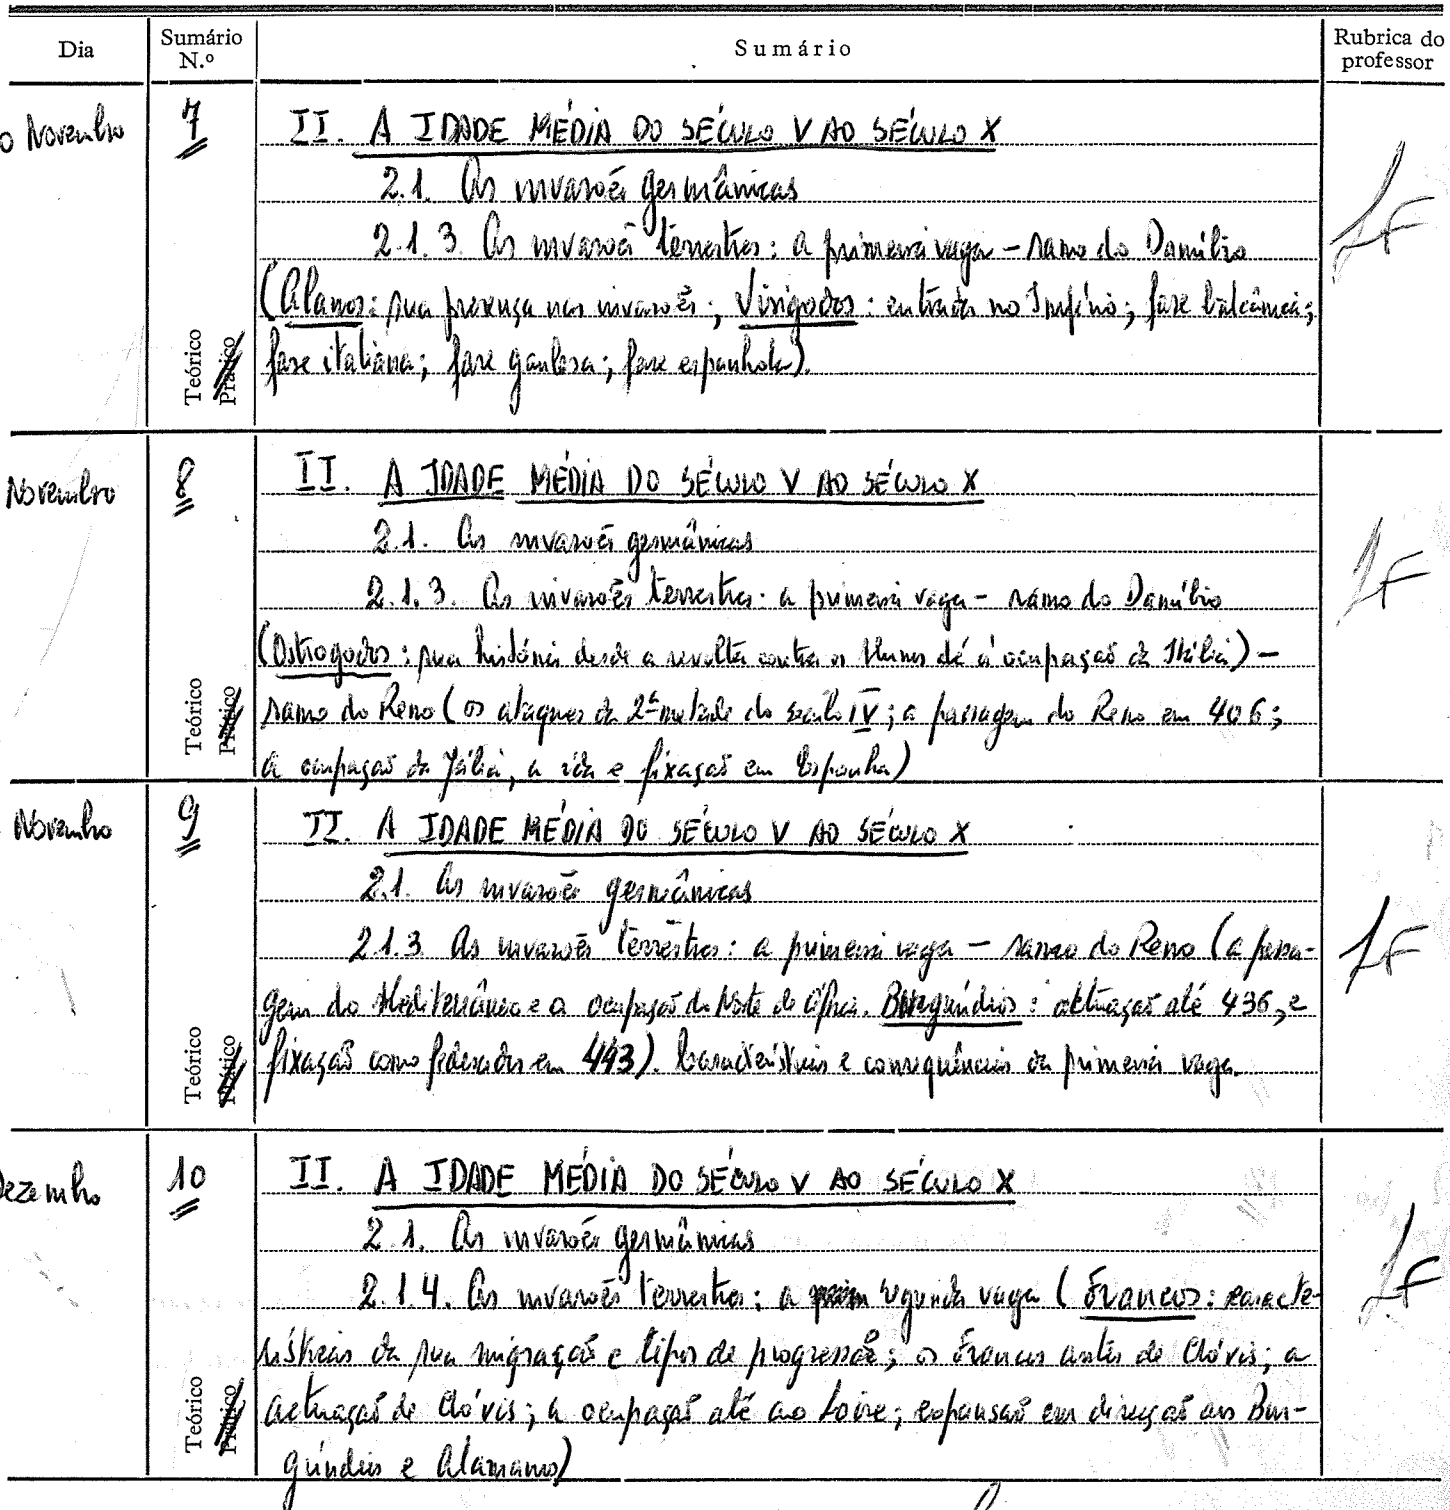 Dia Sumário N.º Sumário Rubrica do professor
o Novembro 7 II. A IDADE MÉDIA DO SÉCULO V AO SÉCULO X
2.1. As invasões germânicas
2.1.3. As invasões terrestres: a primeira vaga – ramo do Danúbio
(Alanos: sua presença nas invasões; Visigodos: entrada no Império; fase balcânica;
fase italiana; fase gaulesa; fase espanhola).
Teórico
Prático
Novembro 8 II. A IDADE MÉDIA DO SÉCULO V AO SÉCULO X
2.1. As invasões germânicas
2.1.3. As invasões terrestres: a primeira vaga – ramo do Danúbio
(Ostrogodos: sua história desde a revolta contra os Hunos até à ocupação da Itália) –
ramo do Reno (os ataques da 2ª metade do século IV; a passagem do Reno em 406;
a ocupação da Gália, a ida e fixação em Espanha)
Teórico
Prático
Novembro 9 II. A IDADE MÉDIA DO SÉCULO V AO SÉCULO X
2.1. As invasões germânicas
2.1.3. As invasões terrestres: a primeira vaga – ramo do Reno (a passa-
gem do Mediterrâneo e a ocupação do Norte de África. Burgúndios: actuação até 436, e
fixação como federados em 443). Características e consequências da primeira vaga.
Teórico
Prático
Dezembro 10 II. A IDADE MÉDIA DO SÉCULO V AO SÉCULO X
2.1. As invasões germânicas
2.1.4. As invasões terrestres: a segunda vaga (Francos: caracte-
rísticas da sua migração e tipos de progressão; os Francos antes de Clóvis; a
actuação de Clóvis; a ocupação até ao Loire; expansão em direcção aos Bur-
gúndios e Alamanos)
Teórico
Prático